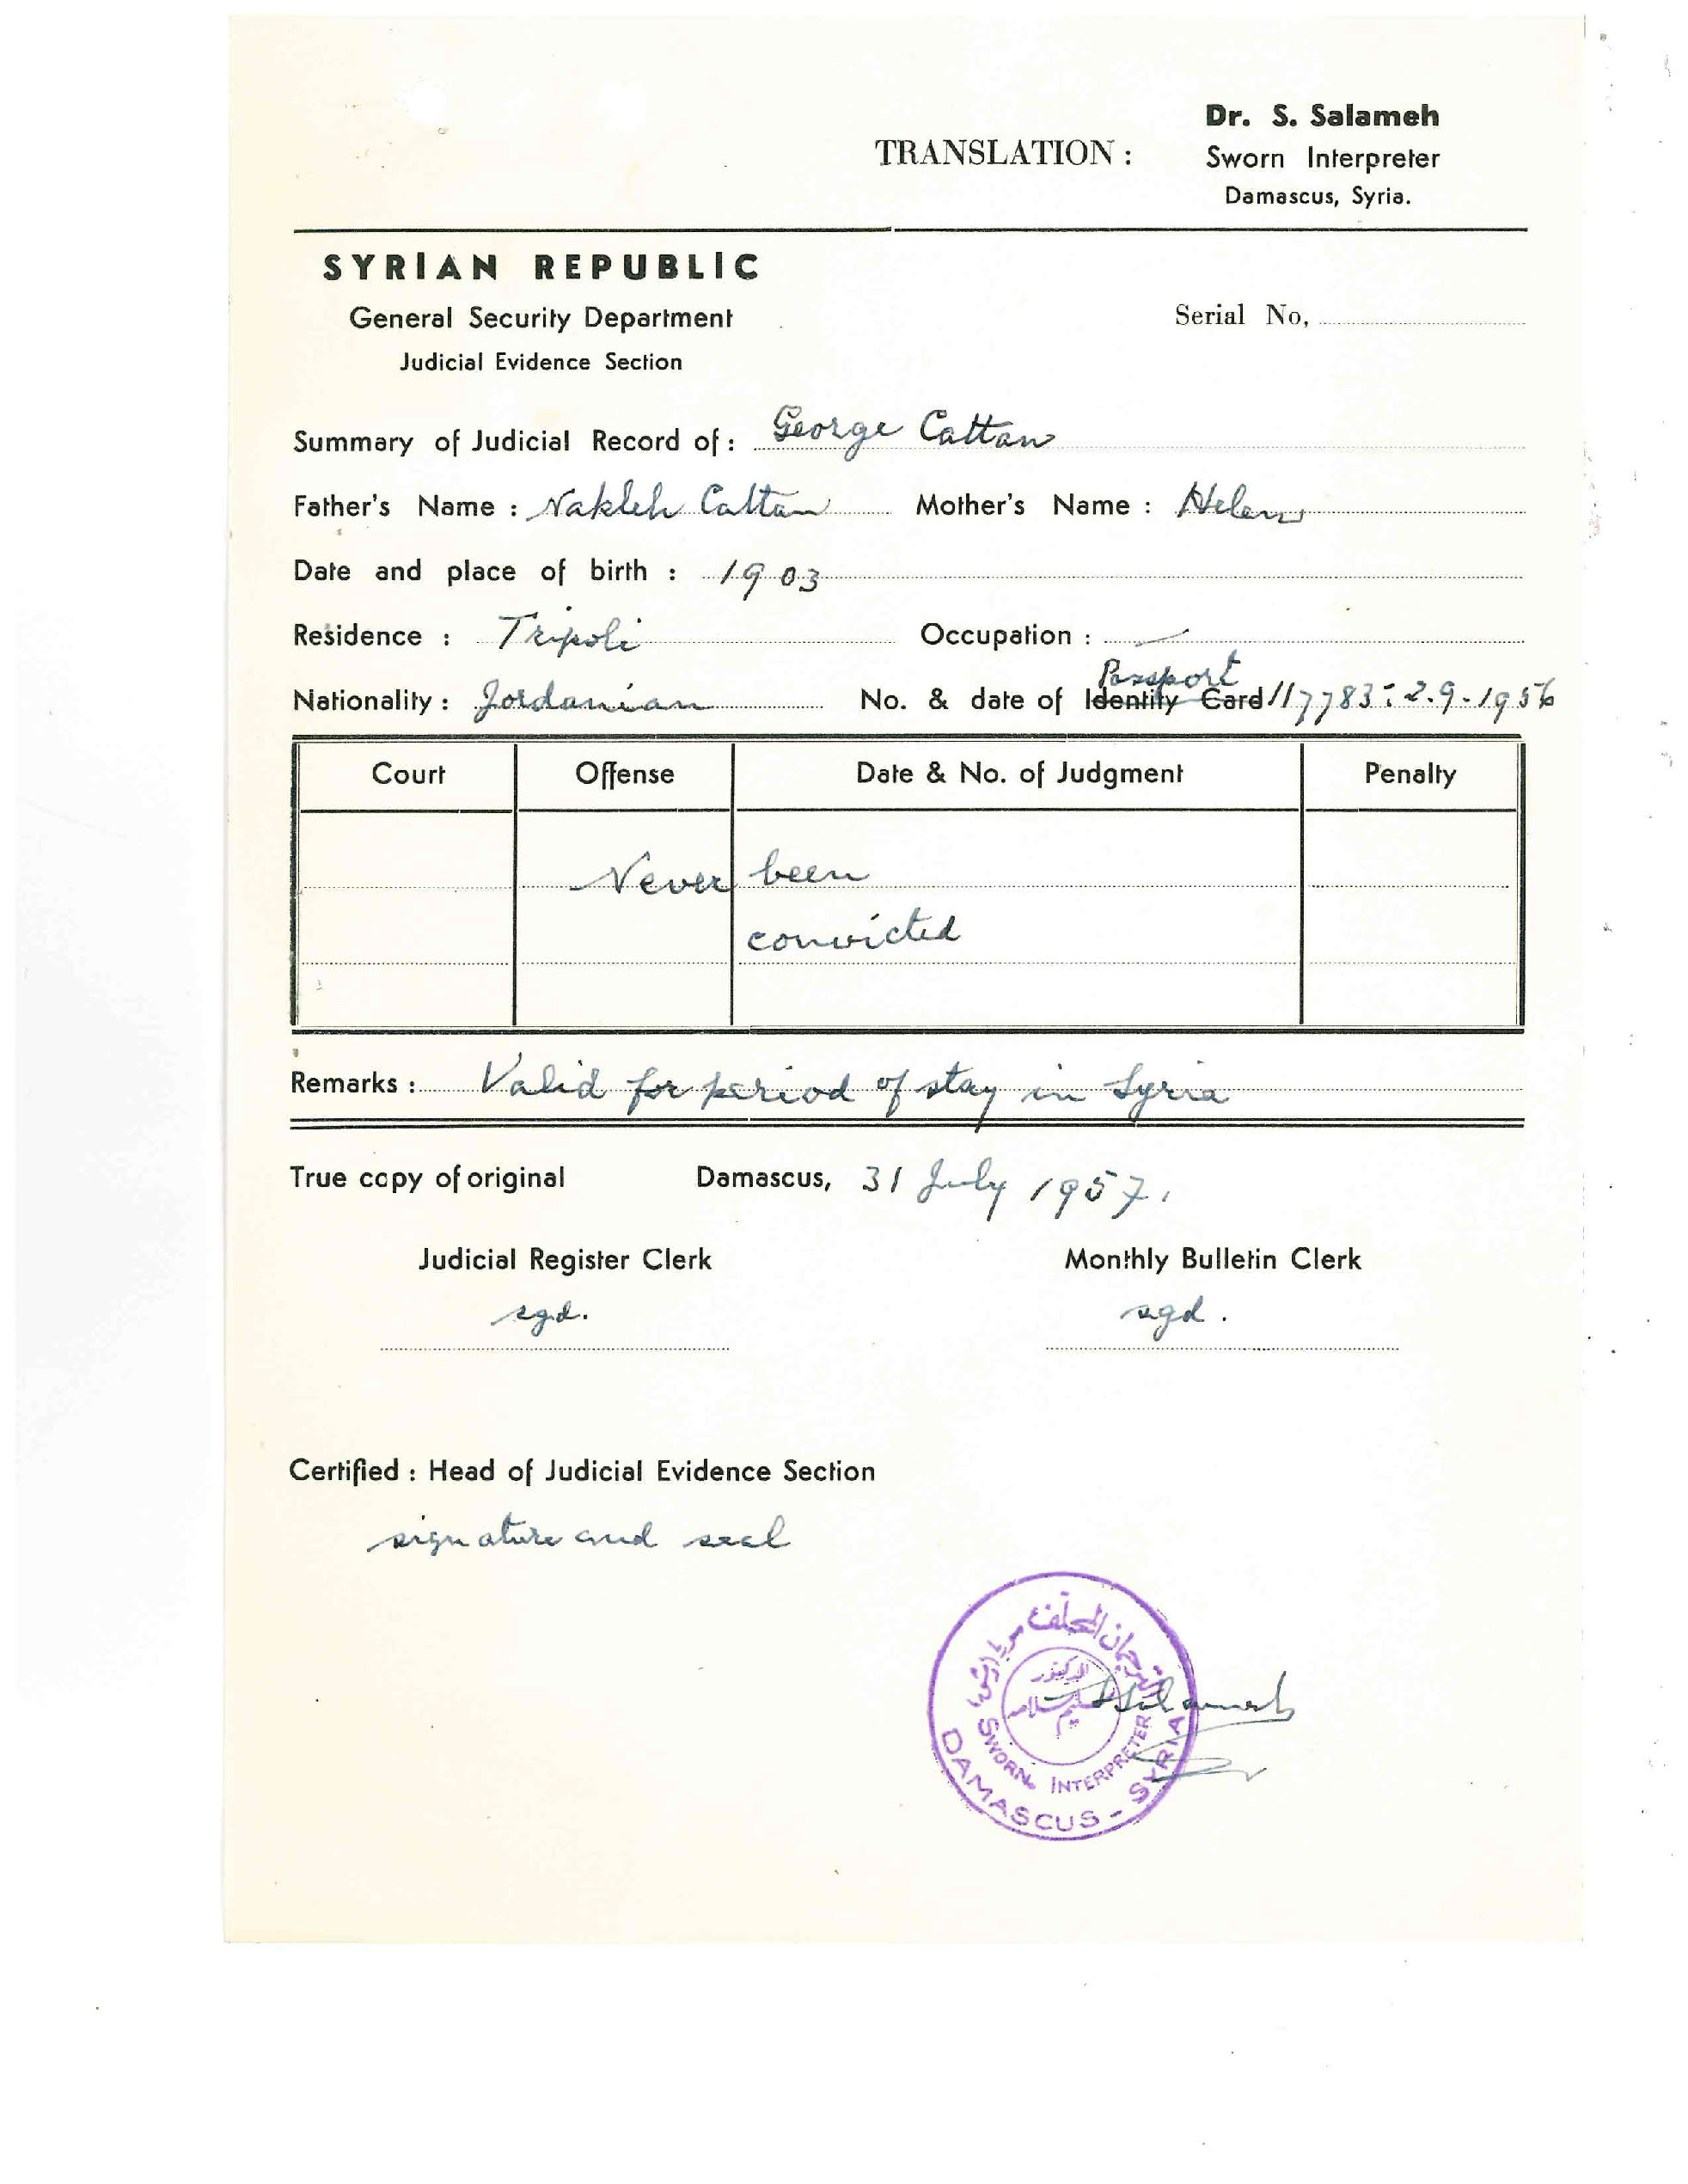 Dr. S. Salameh
TRANSLATION :
Sworn Interpreter
Damascus, Syria.
SYRIAN REPUBLIC
General Security Department
Serial No,
Judicial Evidence Section
Summary of Judicial Record of : George Cattan
Father's Name : Nakleh Cattan Mother's Name : Helen
Date and place of birth : 1903
Residence : Tripoli Occupation : —
Passport
Nationality : Jordanian No. & date of Identity Card 117783 : 2.9.1956
Court Offense Date & No. of Judgment Penalty
Never been
convicted
Remarks : Valid for period of stay in Syria
True copy of original Damascus, 31 July 1957.
Judicial Register Clerk Monthly Bulletin Clerk
sgd. sgd.
Certified : Head of Judicial Evidence Section
signature and seal
الترجمان المحلف
الدكتور
سليم سلامه
SWORN INTERPRETER
DAMASCUS - SYRIA
SSalameh